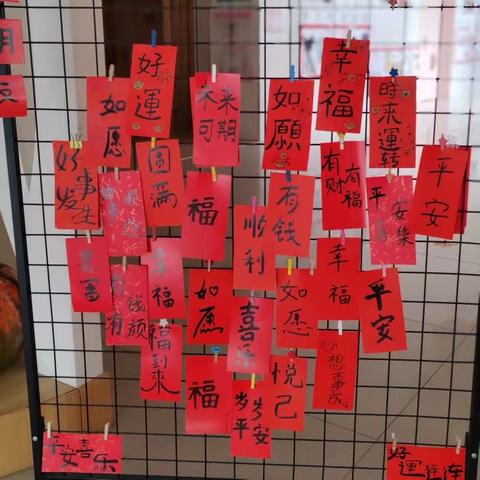 好運
幸福
如愿
未来
可期
如願
時來運轉
好事
发生
圆满
福
有财
有福
平安
安樂
平安
有钱
順利
幸福
如愿
幸福
如愿
平安
有钱
福到來
喜乐
心想事成
福
悦己
岁岁
平安
平安喜乐
好運连连